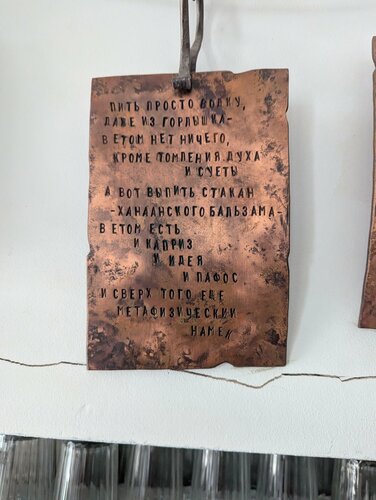 ПИТЬ ПРОСТО ВОДКУ,
ДАЖЕ ИЗ ГОРЛЫШКА-
В ЕТОМ НЕТ НИЧЕГО,
КРОМЕ ТОМЛЕНИЯ ДУХА
И СУЕТЫ
А ВОТ ВЫПИТЬ СТАКАН
-ХАНААНСКОГО БАЛЬЗАМА-
В ЕТОМ ЕСТЬ
И КАПРИЗ
И ИДЕЯ
И ПАФОС
И СВЕРХ ТОГО ЕЩЕ
МЕТАФИЗИЧЕСКИЙ
НАМЕК